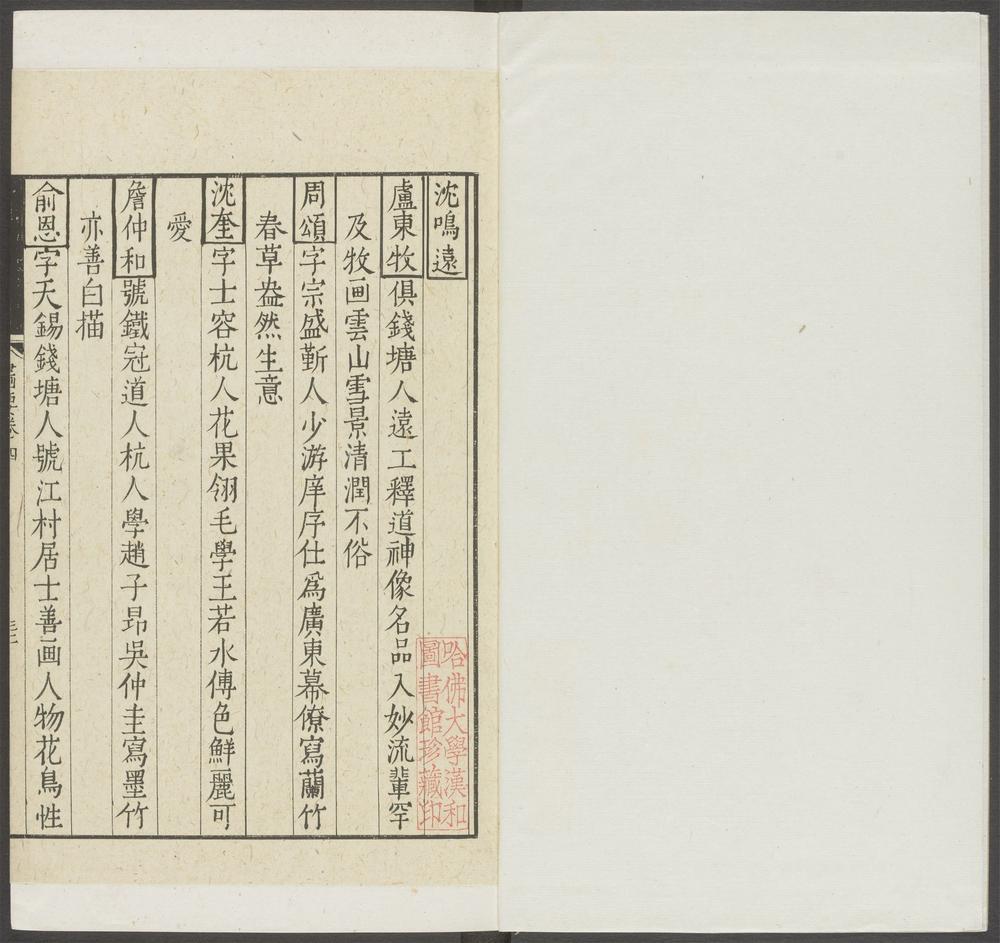 沈鳴遠
盧東牧俱錢塘人遠工釋道神像名品入妙流輩罕
及牧画雲山雪景清潤不俗
周頌字宗盛蘄人少游庠序仕爲廣東幕僚寫蘭竹
春草盎然生意
沈奎字士容杭人花果翎毛學王若水傳色鮮麗可
愛
詹仲和號鐵冠道人杭人學趙子昻吳仲圭寫墨竹
亦善白描
俞恩字天錫錢塘人號江村居士善画人物花鳥性
哈佛大學漢和
圖書館珍藏印